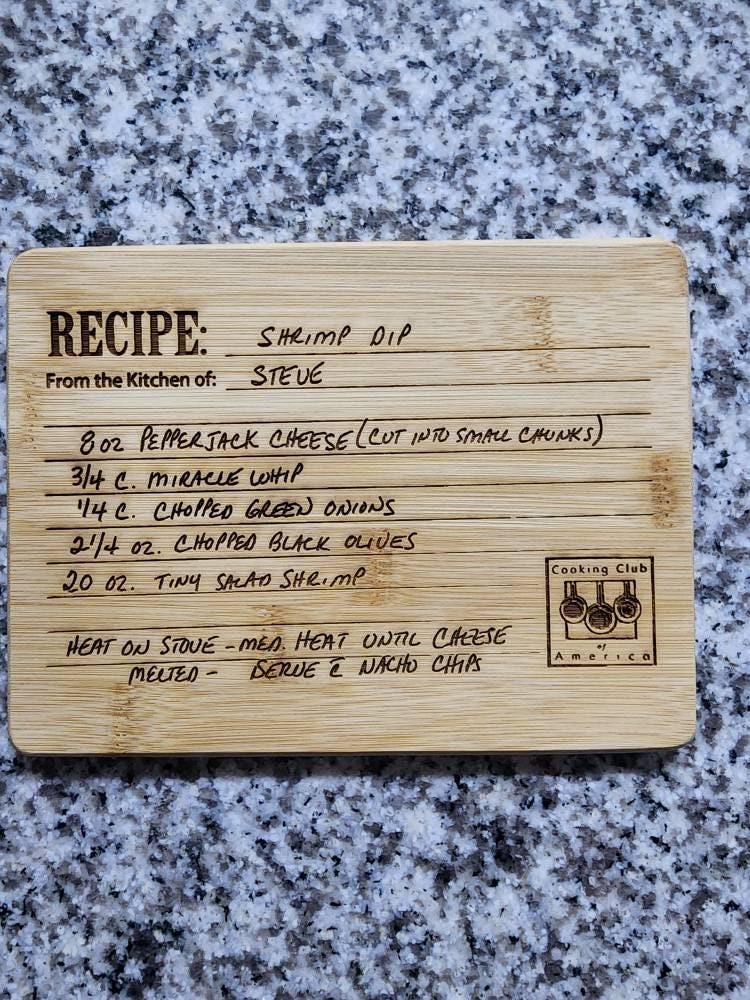 RECIPE: SHRIMP DIP
From the Kitchen of: STEVE
8 OZ PEPPERJACK CHEESE (CUT INTO SMALL CHUNKS)
3/4 C. MIRACLE WHIP
1/4 C. CHOPPED GREEN ONIONS
2 1/4 OZ. CHOPPED BLACK OLIVES
20 OZ. TINY SALAD SHRIMP
HEAT ON STOVE - MED. HEAT UNTIL CHEESE
MELTED - SERVE c̄ NACHO CHIPS
Cooking Club
of
America